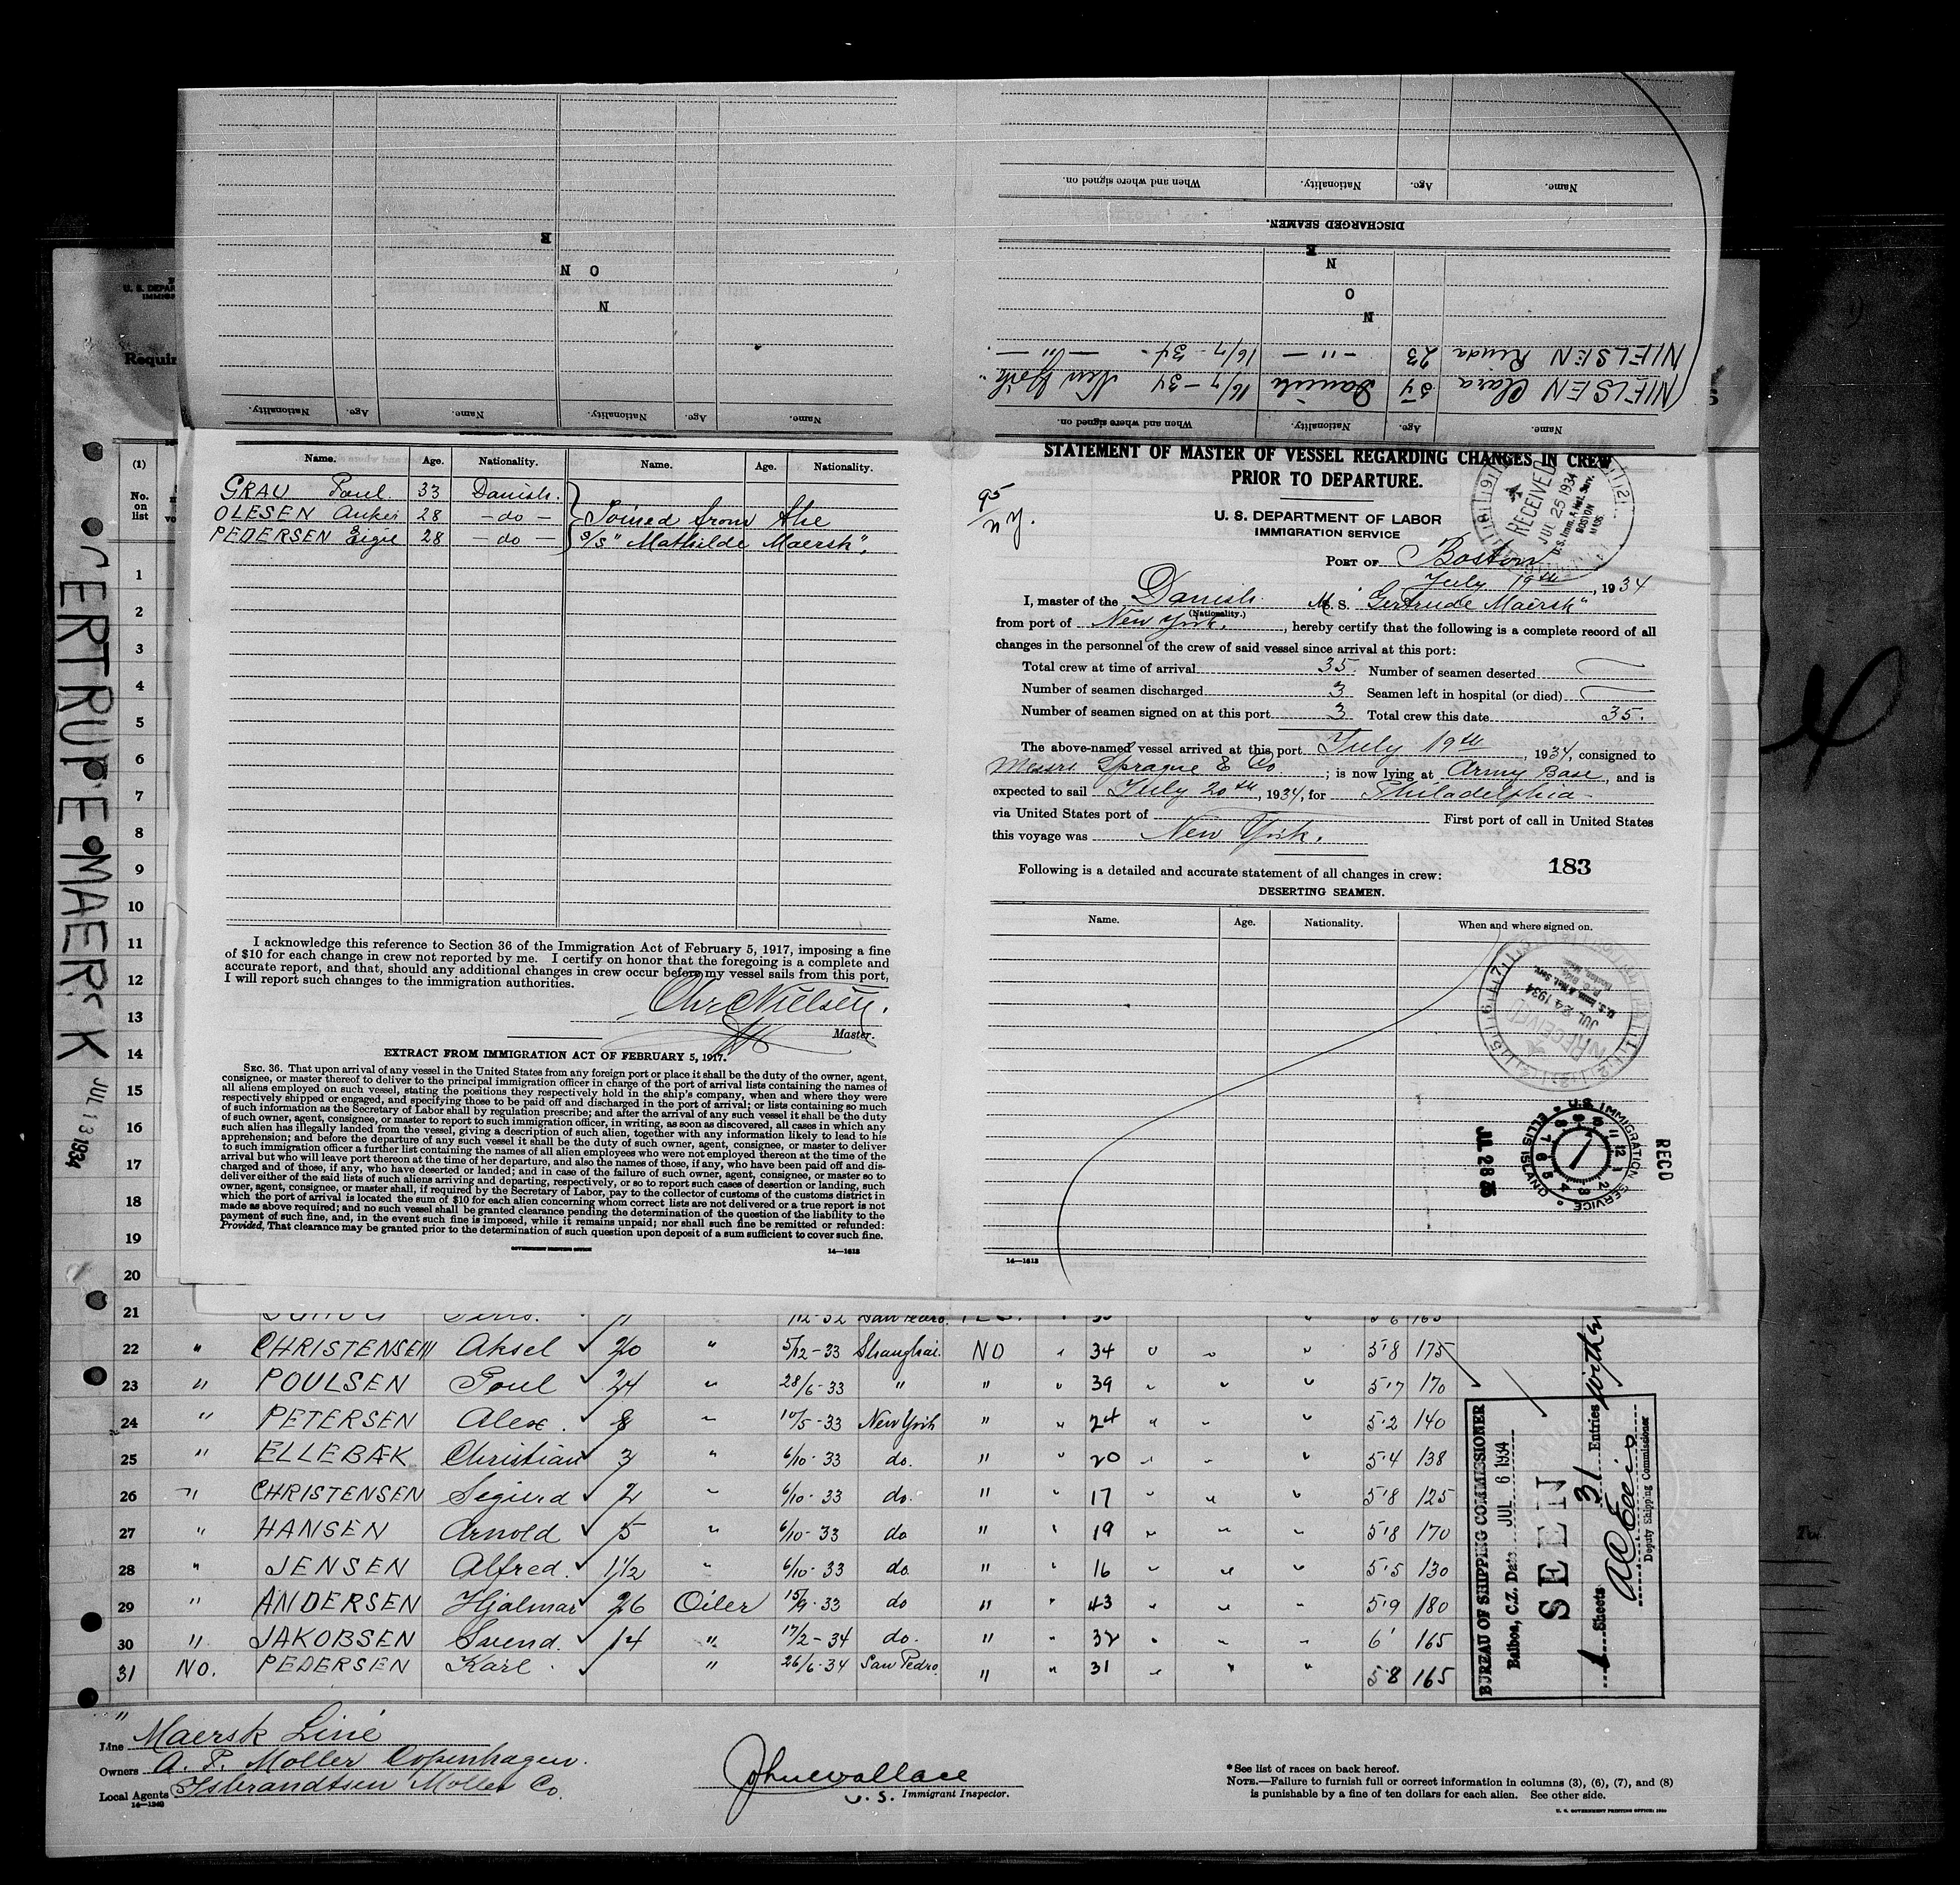 When and where signed on.
Nationality.
Age.
Name.
DISCHARGED SEAMEN.
N O N E
NIELSEN 23 — " — 16/7-34 — " —
NIELSEN Clara 54 Danish 16/7-34 New York.
Name. Age. Nationality. When and where signed on.
N O N E
Name. Age. Nationality. Name. Age. Nationality.
Name. Age. Nationality. Name. Age. Nationality.
GRAU Poul 33 Danish.
OLESEN Anker 28 — do — Joined from the
PEDERSEN 28 — do — S/S "Mathilde Maersk".
I acknowledge this reference to Section 36 of the Immigration Act of February 5, 1917, imposing a fine
of $10 for each change in crew not reported by me. I certify on honor that the foregoing is a complete and
accurate report, and that, should any additional changes in crew occur before my vessel sails from this port,
I will report such changes to the immigration authorities.
Chr Nielsen.
Master.
EXTRACT FROM IMMIGRATION ACT OF FEBRUARY 5, 1917.
SEC. 36. That upon arrival of any vessel in the United States from any foreign port or place it shall be the duty of the owner, agent,
consignee, or master thereof to deliver to the principal immigration officer in charge of the port of arrival lists containing the names of
all aliens employed on such vessel, stating the positions they respectively hold in the ship's company, when and where they were
respectively shipped or engaged, and specifying those to be paid off and discharged in the port of arrival; or lists containing so much
of such information as the Secretary of Labor shall by regulation prescribe; and after the arrival of any such vessel it shall be the duty
of such owner, agent, consignee, or master to report to such immigration officer, in writing, as soon as discovered, all cases in which any
such alien has illegally landed from the vessel, giving a description of such alien, together with any information likely to lead to his
apprehension; and before the departure of any such vessel it shall be the duty of such owner, agent, consignee, or master to deliver
to such immigration officer a further list containing the names of all alien employees who were not employed thereon at the time of the
arrival but who will leave port thereon at the time of her departure, and also the names of those, if any, who have been paid off and dis-
charged and of those, if any, who have deserted or landed; and in case of the failure of such owner, agent, consignee, or master so to
deliver either of the said lists of such aliens arriving and departing, respectively, or so to report such cases of desertion or landing, such
owner, agent, consignee, or master shall, if required by the Secretary of Labor, pay to the collector of customs of the customs district in
which the port of arrival is located the sum of $10 for each alien concerning whom correct lists are not delivered or a true report is not
made as above required; and no such vessel shall be granted clearance pending the determination of the question of the liability to the
payment of such fine, and, in the event such fine is imposed, while it remains unpaid; nor shall such fine be remitted or refunded:
Provided, That clearance may be granted prior to the determination of such question upon deposit of a sum sufficient to cover such fine.
GOVERNMENT PRINTING OFFICE 14—1613
STATEMENT OF MASTER OF VESSEL REGARDING CHANGES IN CREW
PRIOR TO DEPARTURE.
95
N.Y.
U. S. DEPARTMENT OF LABOR
IMMIGRATION SERVICE
RECEIVED
JUL 25 1934
U.S. Imm. & Nat. Serv.
BOSTON
MASS.
PORT OF Boston
July 19th, 1934
I, master of the Danish M. S. "Gertrude Maersk"
(Nationality.)
from port of New York., hereby certify that the following is a complete record of all
changes in the personnel of the crew of said vessel since arrival at this port:
Total crew at time of arrival 35. Number of seamen deserted
Number of seamen discharged 3 Seamen left in hospital (or died)
Number of seamen signed on at this port 3 Total crew this date 35.
The above-named vessel arrived at this port July 19th, 1934, consigned to
Messrs Sprague & Co.; is now lying at Army Base, and is
expected to sail July 20th, 1934, for Philadelphia
via United States port of First port of call in United States
this voyage was New York.
183
Following is a detailed and accurate statement of all changes in crew:
DESERTING SEAMEN.
Name. Age. Nationality. When and where signed on.
RECEIVED
JUL 24 1934
U.S. Imm. & Nat. Serv.
U.S. IMMIGRATION SERVICE
ELLIS ISLAND
RECD
14—1613
GERTRUDE MAERSK
JUL 13 1934
U. S. DEPAR
IMMIG
Requir
(1)
No.
on
list
1
2
3
4
5
6
7
8
9
10
11
12
13
14
15
16
17
18
19
20
21
22 " CHRISTENSEN Aksel ✓ 20 " 5/12-33 Shanghai. NO " 34 " " " 5'8 175
23 " POULSEN Poul ✓ 24 " 28/6-33 " " " 39 " " " 5'7 170
24 " PETERSEN Alex. ✓ 8 " 10/5-33 New York " " 24 " " " 5'2 140
25 " ELLEBÆK Christian ✓ 3 " 6/10-33 do. " " 20 " " 5'4 138
26 " CHRISTENSEN Sigurd ✓ 2 " 6/10-33 do. " " 17 " " " 5'8 125
27 " HANSEN Arnold ✓ 5 " 6/10-33 do " " 19 " " " 5'8 170
28 " JENSEN Alfred. ✓ 1 1/2 " 6/10-33 do. " " 16 " " " 5'5 130
29 " ANDERSEN Hjalmar ✓ 26 Oiler 15/9-33 do " " 43 " " " 5'9 180
30 " JAKOBSEN Svend. ✓ 14 " 17/2-34 do. " " 32 " " " 6' 165
31 NO. PEDERSEN Karl. ✓ " 26/6-34 San Pedro. " " 31 " " " 5'8 165
BUREAU OF SHIPPING COMMISSIONER
Balboa, C.Z. Date JUL 6 1934
SEEN
1 Sheets 31 Entries
Deputy Shipping Commissioner
Line Maersk Line
Owners A. P. Moller Copenhagen.
Local Agents Isbrandtsen Moller Co.
14—1240
John Wallace
U. S. Immigrant Inspector.
*See list of races on back hereof.
NOTE.—Failure to furnish full or correct information in columns (3), (6), (7), and (8)
is punishable by a fine of ten dollars for each alien. See other side.